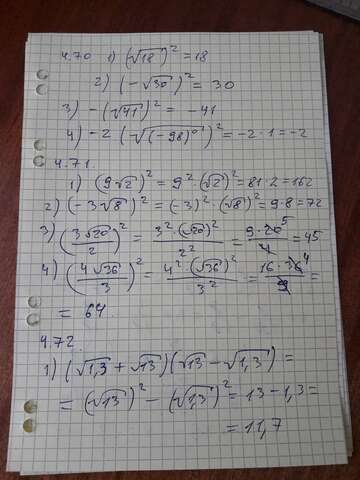 4.70 1) (√18)² = 18
2) (-√30)² = 30
3) -(√41)² = -41
4) -2(√(-98)⁰)² = -2·1 = -2
4.71.
1) (9√2)² = 9²·(√2)² = 81·2 = 162
2) (-3√8)² = (-3)²·(√8)² = 9·8 = 72
3) (3√20/2)² = 3²·(√20)²/2² = 9·20⁵/4 = 45
4) (4√36/3)² = 4²·(√36)²/3² = 16·36⁴/9 =
= 64
4.72.
1) (√1,3 + √13)(√13 - √1,3) =
= (√13)² - (√1,3)² = 13 - 1,3 =
= 11,7